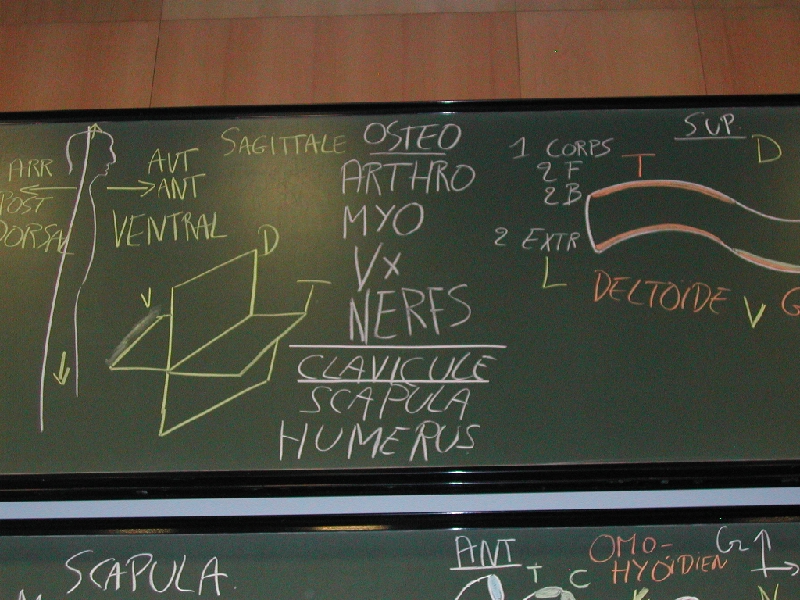 ARR
POST
DORSAL
AVT
ANT
VENTRAL
SAGITTALE
V
D
T
OSTEO
ARTHRO
MYO
Vx
NERFS
CLAVICULE
SCAPULA
HUMERUS
1 CORPS
2 F
2 B
2 EXTR
L
T
SUP.
D
DELTOIDE
V
G
SCAPULA
ANT
T
C
OMO-
HYOÏDIEN